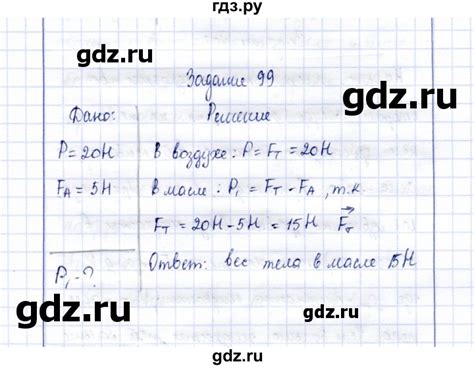 гдз.ру
gdz.ru
gdz.ru
Задание 99
Дано:
Решение
P = 20Н
В воздухе: P = Fт = 20Н
FА = 5Н
В масле: P₁ = Fт - FА, т.к.
Fт = 20Н - 5Н = 15Н Fт
P₁ - ?
Ответ: вес тела в масле 15Н
gdz.ru
gdz.ru
гдз.ру